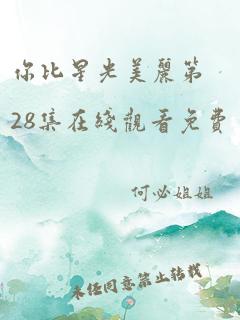 你比星光美麗第
28集在綫觀看免費
何必姐姐
未经同意禁止转载